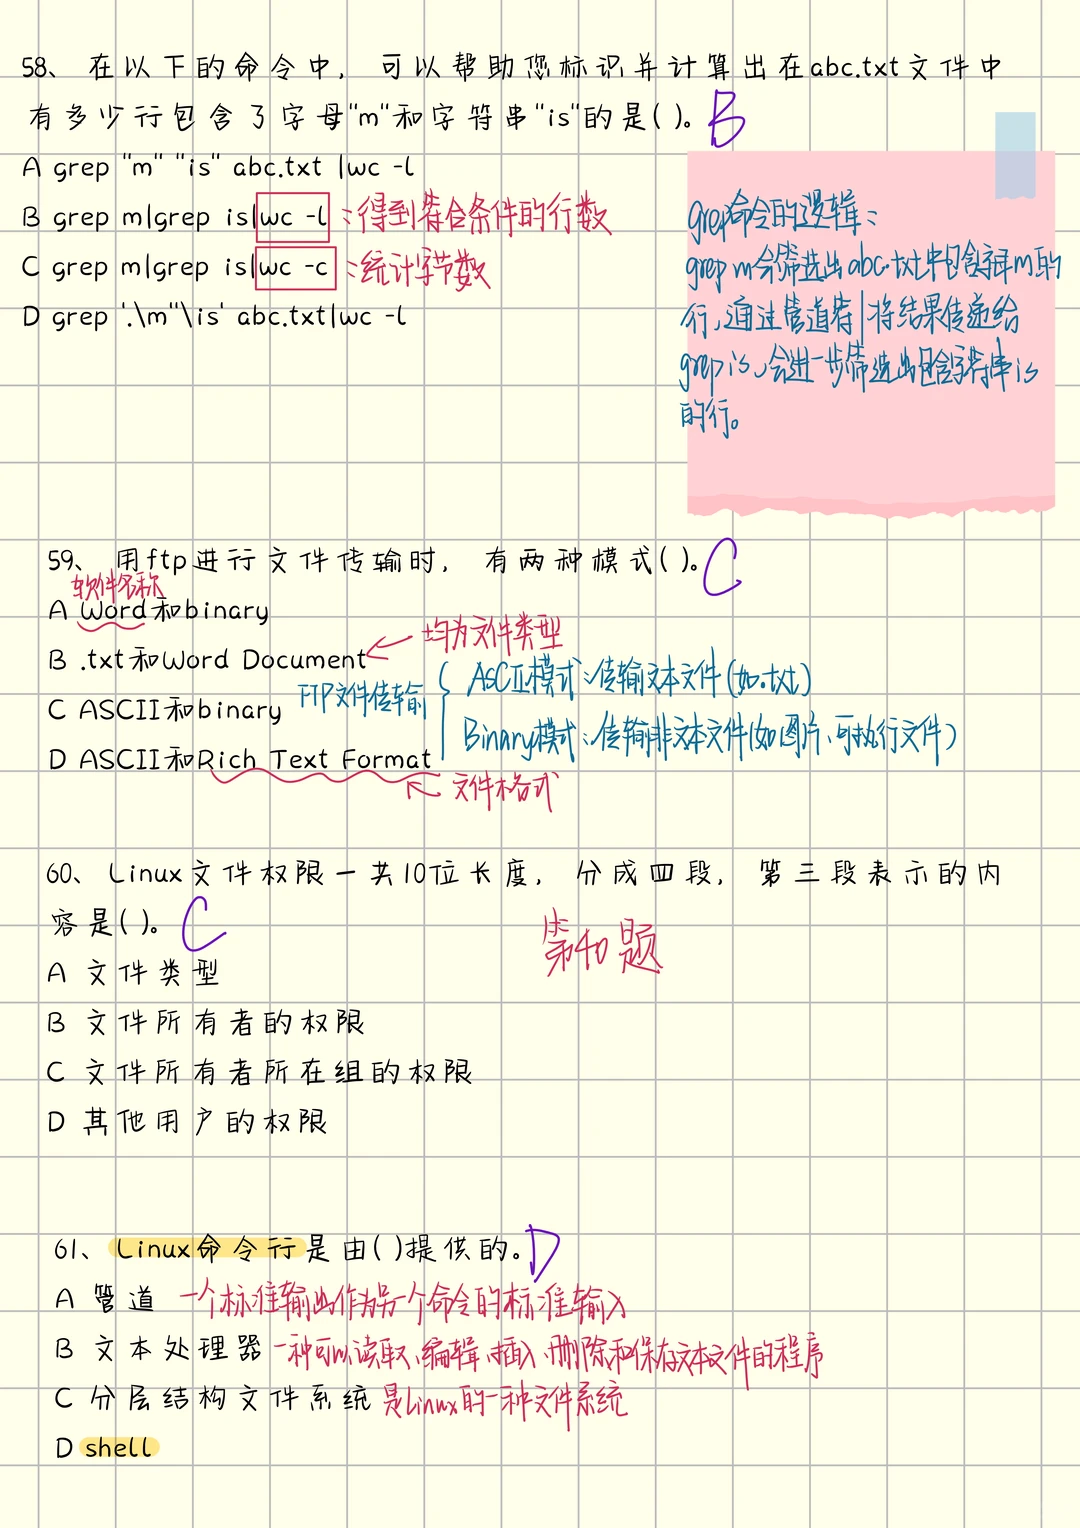 58、在以下的命令中，可以帮助您标识并计算出在abc.txt文件中
有多少行包含了字母"m"和字符串"is"的是( )。B
A grep "m" "is" abc.txt |wc -l
B grep m|grep is|wc -l :得到符合条件的行数
C grep m|grep is|wc -c :统计字节数
D grep '.\m"\is' abc.txt|wc -l
grep命令的逻辑:
grep m会筛选出abc.txt中包含字母m的
行,通过管道符|将结果传递给
grep is,会进一步筛选出包含字符串is
的行。
59、用ftp进行文件传输时，有两种模式( )。C
软件名称
A Word和binary
B .txt和Word Document
均为文件类型
C ASCII和binary
FTP文件传输
ASCII模式:传输文本文件(如.txt)
Binary模式:传输非文本文件(如图片、可执行文件)
D ASCII和Rich Text Format
文件格式
60、Linux文件权限一共10位长度，分成四段，第三段表示的内
容是( )。C
第40题
A 文件类型
B 文件所有者的权限
C 文件所有者所在组的权限
D 其他用户的权限
61、Linux命令行是由( )提供的。D
A 管道 一个标准输出作为另一个命令的标准输入
B 文本处理器 一种可以读取、编辑、插入、删除和保存文本文件的程序
C 分层结构文件系统 是Linux的一种文件系统
D shell